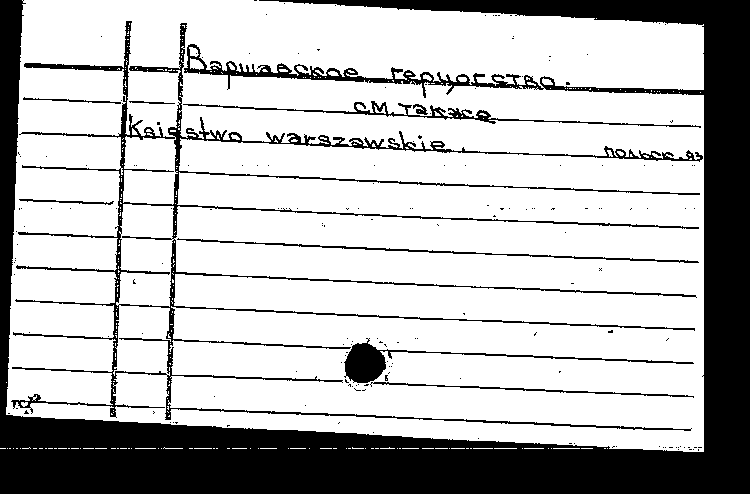 Варшавское герцогство.
см. также
Księstwo warszawskie. польск. яз